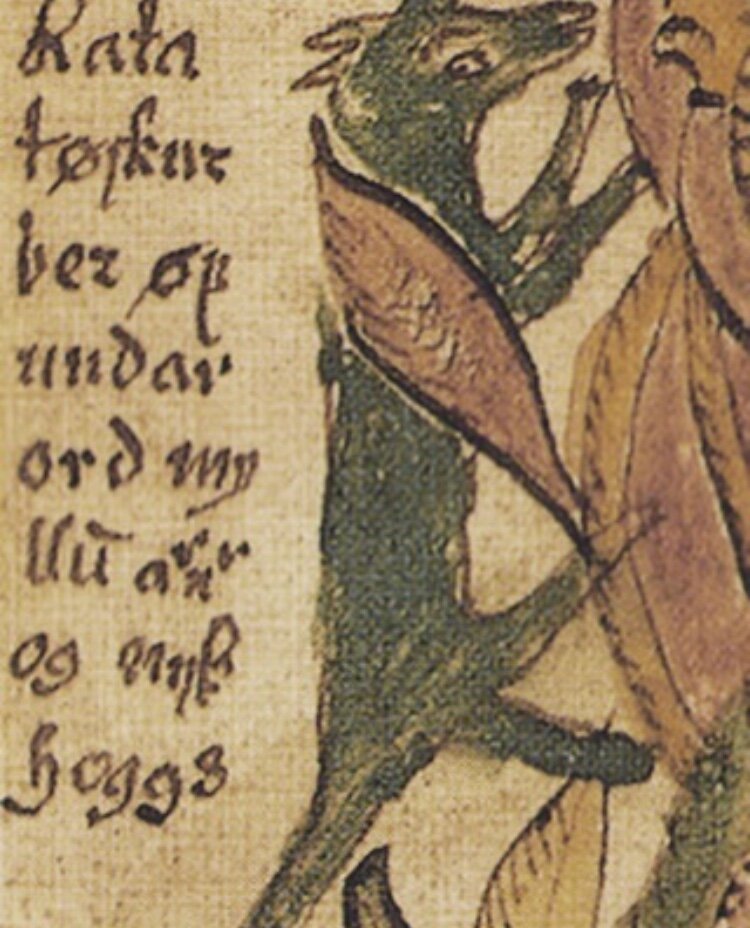 Rata
tøskur
ber øf
undar
ord my
llū arnr
og nyk
hoggs